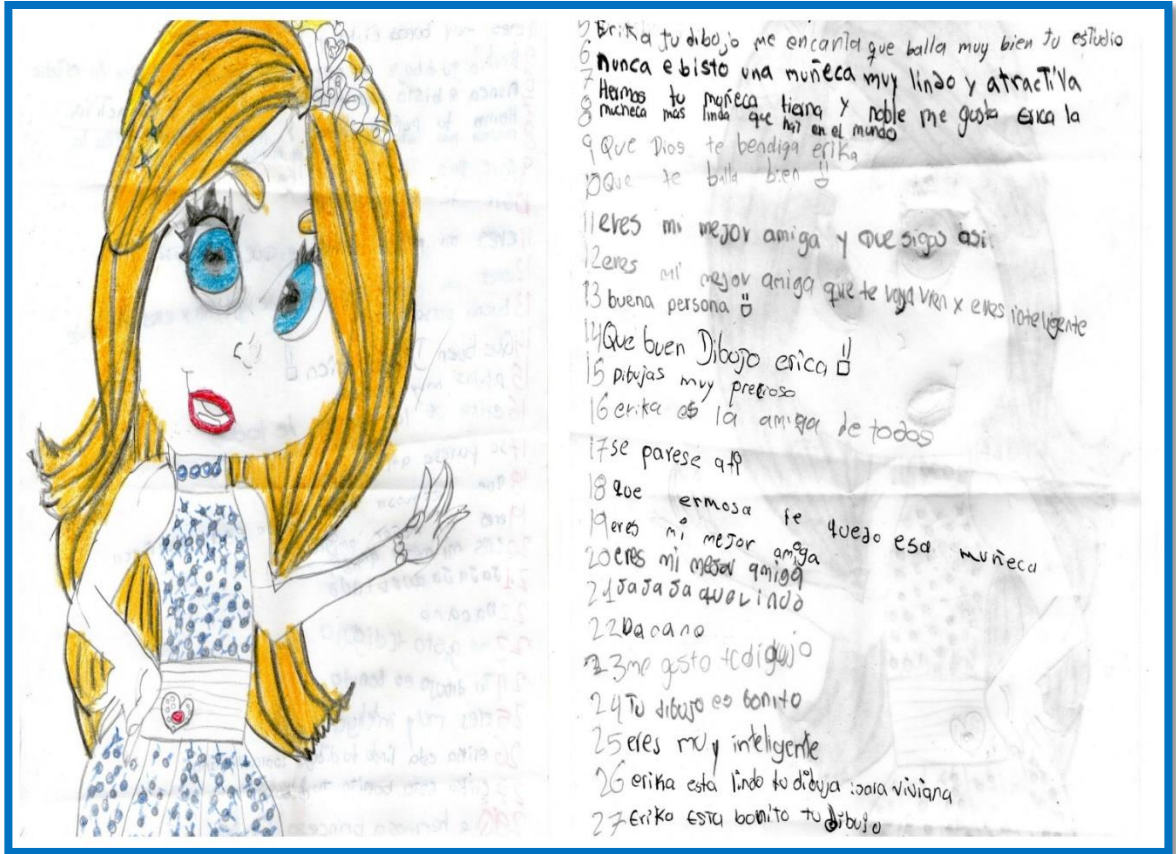 5 Erika tu dibojo me encanta que balla muy bien tu estudio
6 Nunca e bisto una muñeca muy lindo y atractiva
7 Hermos tu muñeca tierna y noble me gusta erica la
8 mucheca mas linda que hai en el mundo
9 Que Dios te bendiga erika
10 Que te balla bien
11 eres mi mejor amiga y que sigas asi
12 eres mi mejor amiga que te vaya vien x eres inteligente
13 buena persona
14 Que buen Dibujo erica
15 Dibujas muy precioso
16 erika es la amiga de todos
17 se parese a ti
18 Que ermosa te quedo esa muñeca
19 eres mi mejor amiga
20 eres mi mejor amiga
21 JaJaJa que lindo
22 Bacano
23 me gusto tu
24 Tu dibujo es bonito
25 eres muy inteligente
26 erika esta lindo tu dibuja viviana
27 Erika ESTA bonito tu dibujo